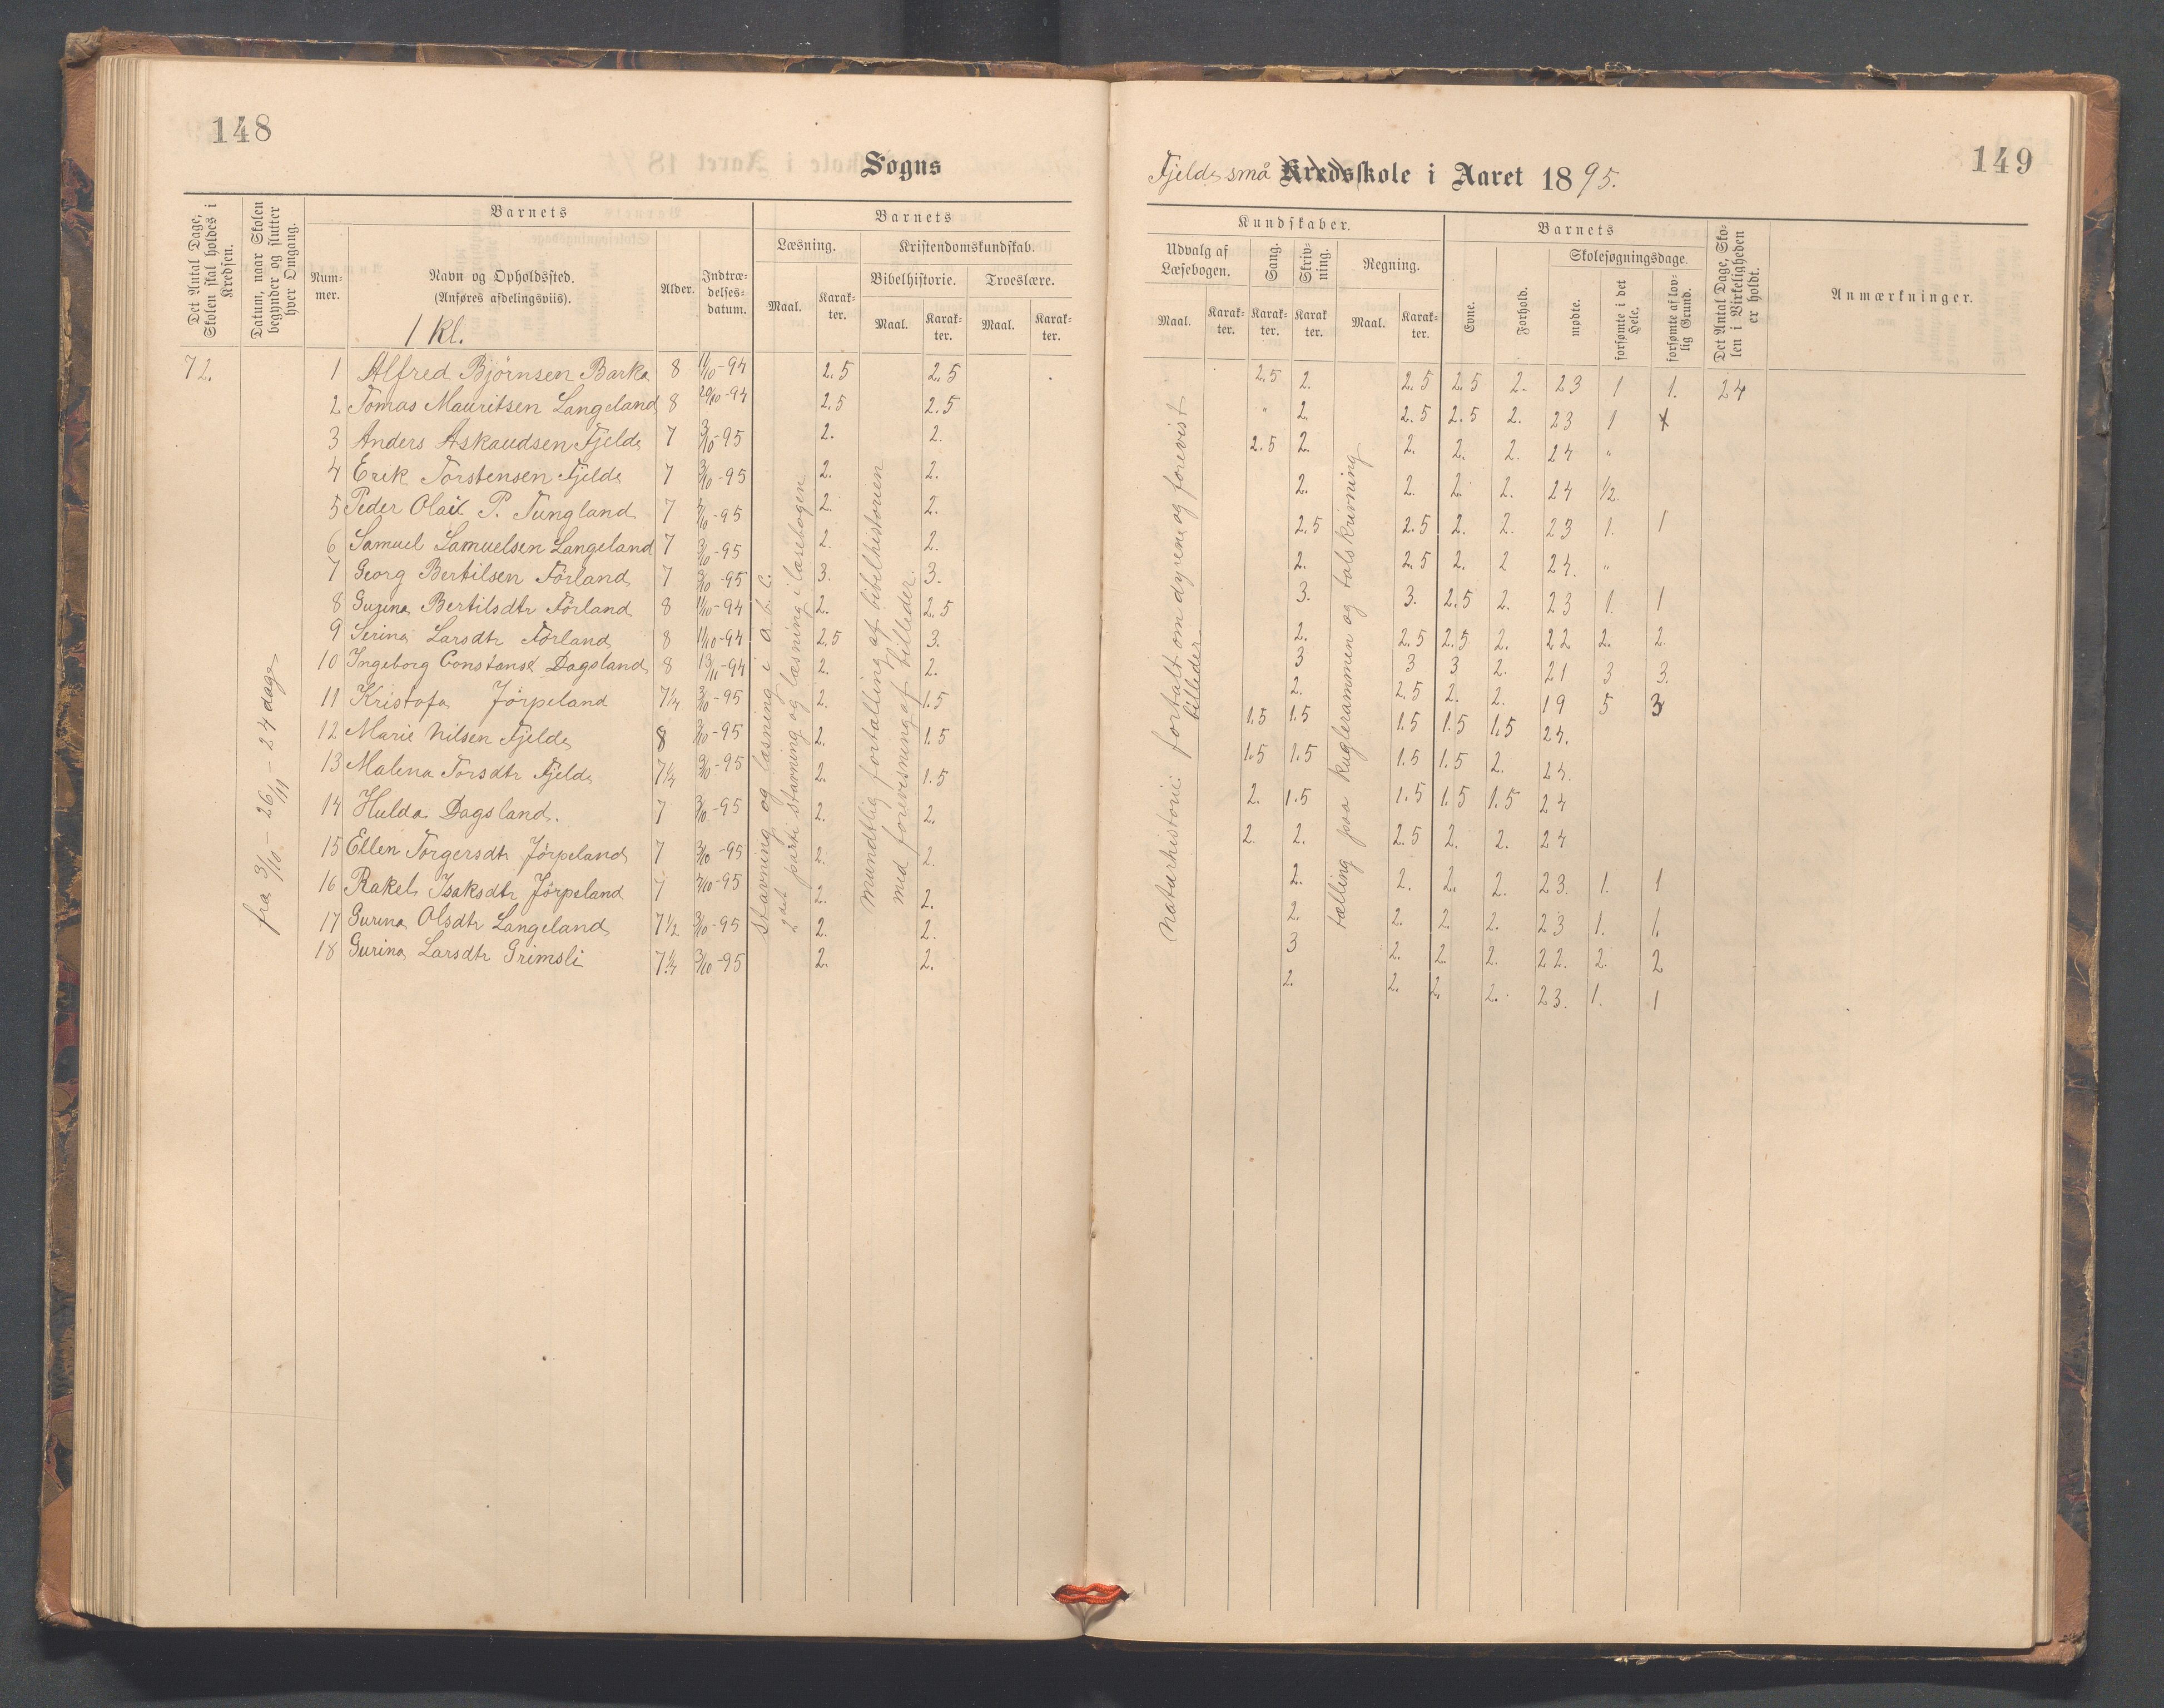 148
Sogns
Det Antal Dage, Skolen skal holdes i Kredsen.
Datum, naar Skolen begynder og slutter hver Omgang.
Barnets
Nummer.
Navn og Opholdssted.
(Anføres afdelingsviis).
1 Kl.
Alder.
Indtrædelses-datum.
Barnets
Læsning.
Maal.
Karakter.
Kristendomskundskab.
Bibelhistorie.
Maal.
Karakter.
Troeslære.
Maal.
Karakter.
72.
fra 3/10 - 26/11 - 24 dage
1 Alfred Bjørnsen Barka 8 11/10-94 2.5 2.5
2 Tomas Mauritsen Langeland 8 20/10-94 2.5 2.5
3 Anders Askaudsen Fjelde 7 3/10-95 2. 2.
4 Erik Torstensen Fjelde 7 3/10-95 2. 2.
5 Peder Olai P. Tungland 7 3/10-95 2. 2.
6 Samuel Samuelsen Langeland 7 3/10-95 2. 2.
7 Georg Bertilsen Förland 7 3/10-95 3. 3.
8 Gurina Bertilsdtr Förland 8 11/10-94 2. 2.5
9 Serina Larsdtr Förland 8 11/10-94 2.5 3.
10 Ingeborg Constanse Dagsland 8 13/11-94 2. 2.
11 Kristofa Jörpeland 7 1/4 3/10-95 2. 1.5
12 Marie Nilsen Fjelde 8 3/10-95 2. 1.5
13 Malena Torsdtr Fjelde 7 1/4 3/10-95 2. 1.5
14 Hulda Dagsland. 7 3/10-95 2. 2.
15 Ellen Torgersdtr Jörpeland 7 3/10-95 2. 2.
16 Rakel Isaksdtr Jörpeland 7 3/10-95 2. 2.
17 Gurina Olsdtr Langeland 7 1/2 3/10-95 2. 2.
18 Gurina Larsdtr Grimsli 7 1/4 3/10-95 2. 2.
Stavning og læsning i a. b. c.
2det parti stavning og læsning i læsebogen
Mundtlig fortælling af bibelhistorien
med forevisning af billeder.
149
Fjelde små Kredsskole i Aaret 1895.
Kundskaber.
Udvalg af Læsebogen.
Maal.
Karakter.
Sang.
Karakter.
Skrivning.
Karak ter.
Regning.
Maal.
Karakter.
Barnets
Evne.
Forhold.
Skolesøgningsdage.
mødte.
forsømte i det Hele.
forsømte af lovlig Grund.
Det Antal Dage, Skolen i Virkeligheden er holdt.
Anmærkninger.
Naturhistorie: fortalt om dyrene og forevist
billeder
tælling paa kuglerammen og talskrivning
2.5 2. 2.5 2.5 2. 23 1 1. 24
" 2. 2.5 2.5 2. 23 1
2.5 2. 2. 2. 2. 24 "
2. 2. 2. 2. 24 1/2.
2.5 2.5 2. 2. 23 1. 1
2. 2.5 2. 2 24. "
3. 3. 2.5 2. 23 1. 1
2. 2.5 2.5 2. 22 2. 2.
3 3 3 2. 21 3 3.
2. 2.5 2. 2. 19 5 3
1.5 1.5 1.5 1.5 1.5 24.
1.5 1.5 1.5 1.5 2. 24.
2. 1.5 1.5 1.5 1.5 24
2. 2. 2.5 2. 2. 24
2. 2. 2. 2. 23. 1. 1
2. 2. 2. 2. 23 1. 1.
3 2. 2. 2. 22. 2. 2
2. 2. 2. 2. 23. 1. 1